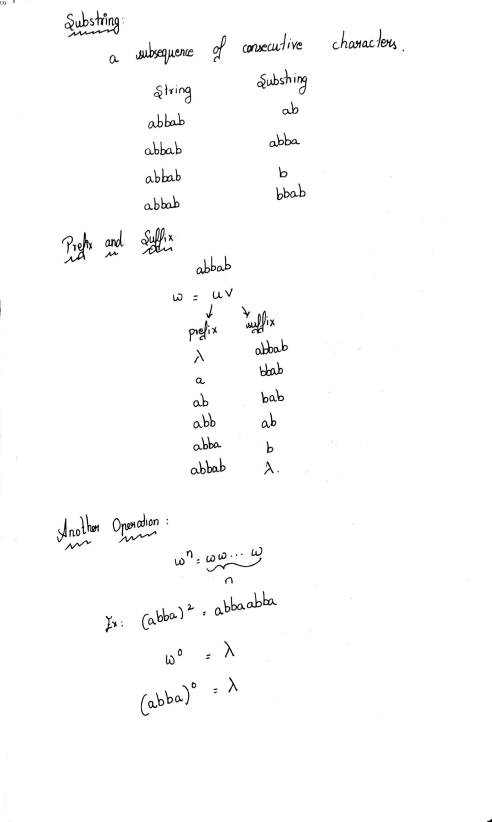 Substring:
a subsequence of consecutive characters.
String Substring
abbab ab
abbab abba
abbab b
abbab bbab
Prefix and Suffix:
abbab
w = uv
prefix suffix
λ abbab
a bbab
ab bab
abb ab
abba b
abbab λ.
Another Operation:
wⁿ = ww... w
n
Ex: (abba)² = abbaabba
w⁰ = λ
(abba)⁰ = λ